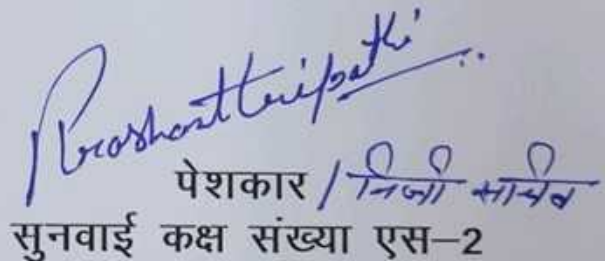 Prashant tripathi
पेशकार / निजी सचिव
सुनवाई कक्ष संख्या एस–2